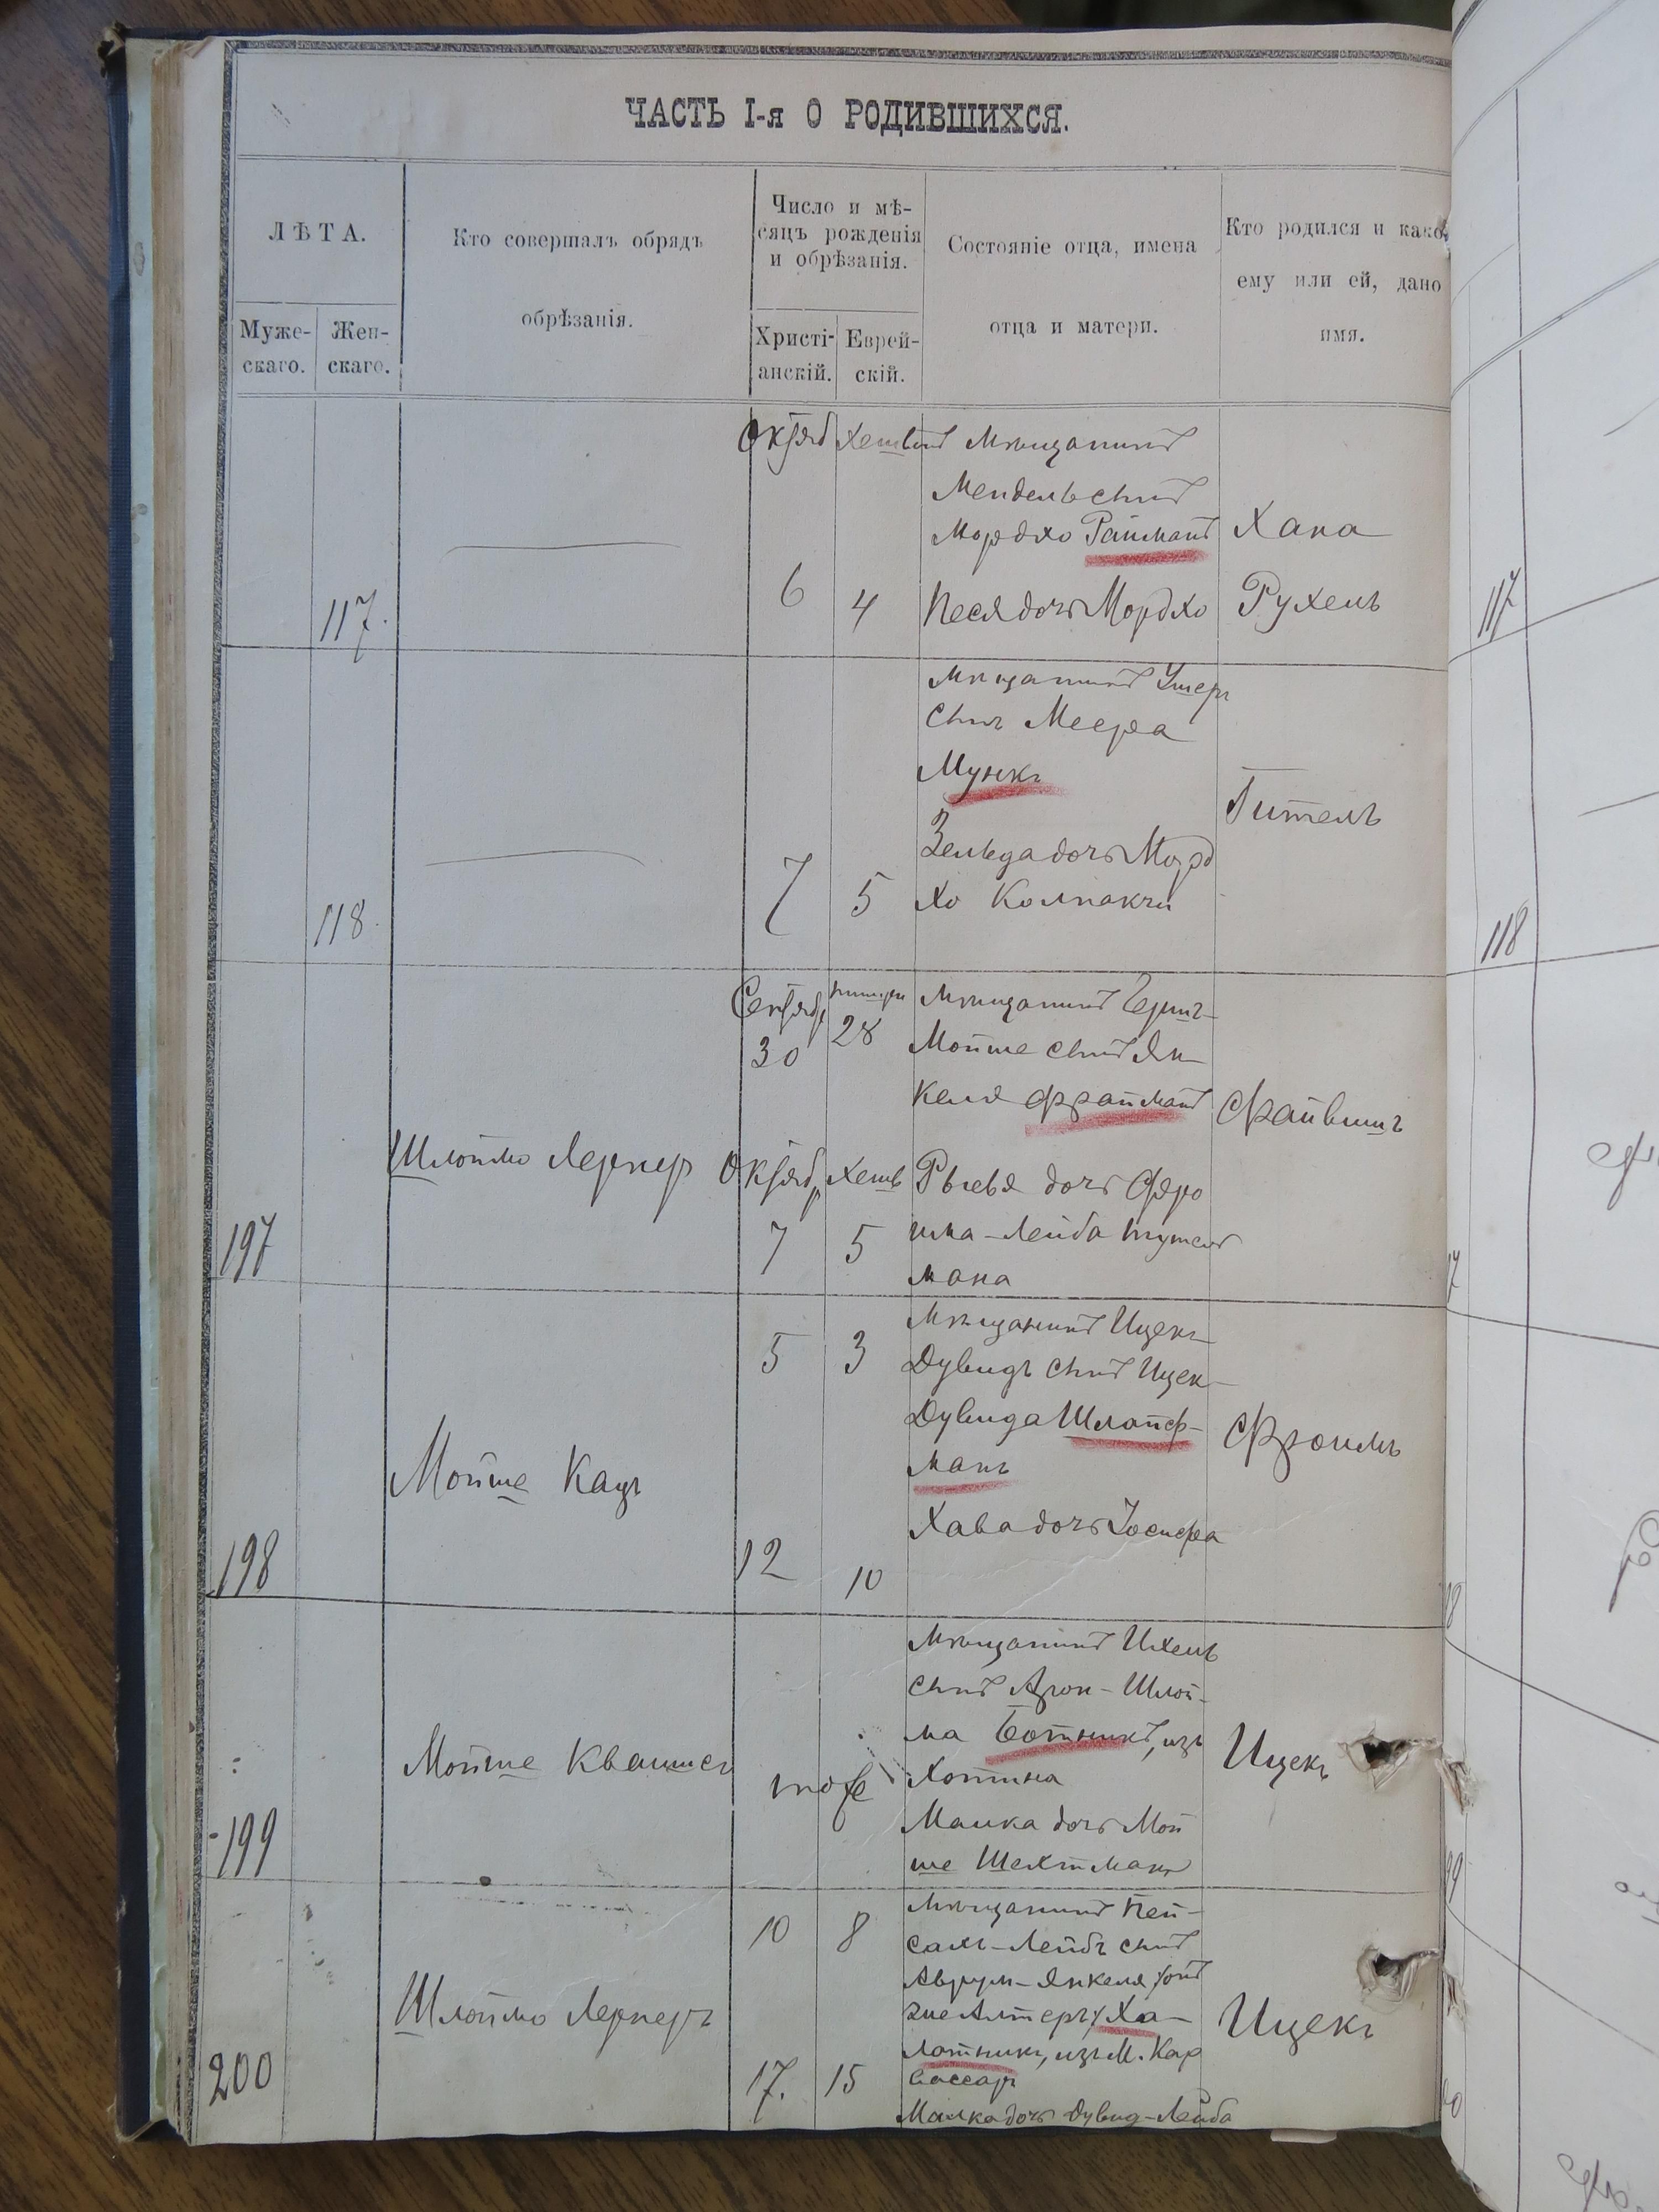 ЧАСТЬ I-я О РОДИВШИХСЯ.
ЛѢТА.
Муже-
скаго.
Жен-
скаго.
Кто совершалъ обрядъ
обрѣзанія.
Число и мѣ-
сяцъ рожденія
и обрѣзанія.
Христі-
анскій.
Еврей-
скій.
Состояніе отца, имена
отца и матери.
Кто родился и како
ему или ей, дано
имя.
117.
Октяб
6
Хешван
4
Мѣщанинъ
Мендель сынъ
Мордхо Райманъ
Песя дочь Мордхо
Хана
Рухель
117
118.
7
5
Мѣщанинъ Ушеръ
сынъ Меера
Мункъ
Зельда дочь Морд
хо Колпакчи
Гитель
118
197
Шлоймо Лернер
Сентябр
30
Тишри
28
Октябр
7
Хешв
5
Мѣщанинъ Бершъ-
Мойше сынъ Ян-
келя Фрайманъ
Рывья дочь
-Лейба
мана
Файвишъ
198
Мойше Кацъ
5
3
12
10
Мѣщанинъ Ицекъ-
Дувидъ сынъ Ицек-
Дувида Шлайф-
манъ
Хава дочь Іосифа
Фроимъ
199
Мойше Квашел
тоже
Мѣщанинъ Ихель
сынъ Арон-Шлой-
ма Ботникъ, изъ
Хотина
Малка дочь Мой
ше Шехтманъ
Ицекъ
200
Шлоймо Лернеръ
10
8
17.
15
Мѣщанинъ Пей-
сахъ-Лейбъ сынъ
Аврум-Янкеля (онъ
же Алтеръ) Ха-
лотникъ, изъ М. Кар
Малка дочь Дувид-Лейба
Ицекъ